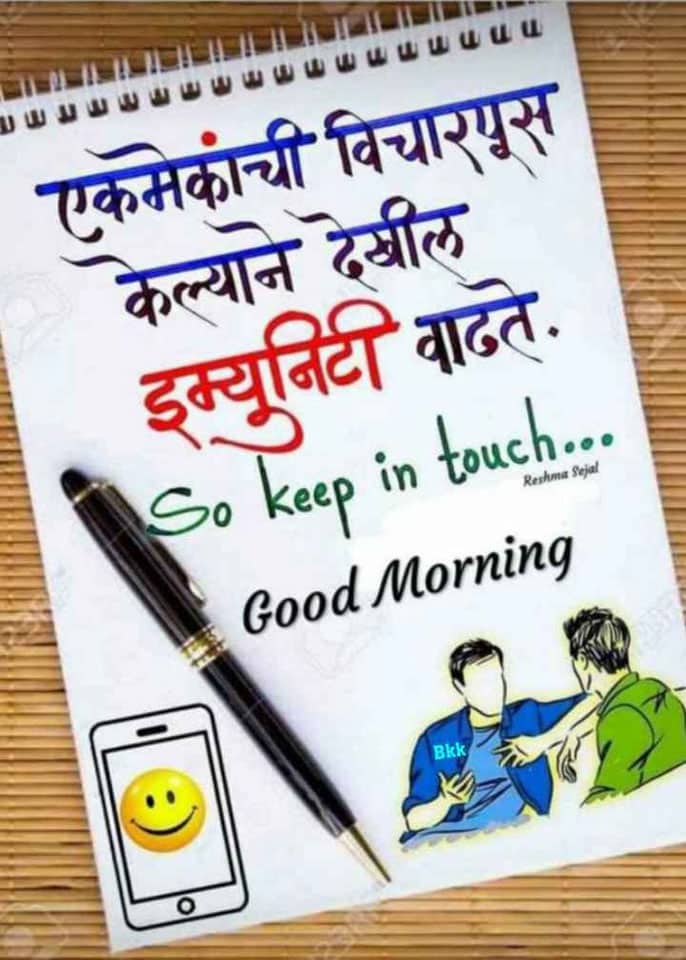 एकमेकांची विचारपूस
केल्याने देखील
इम्युनिटी वाढते.
So keep in touch...
Reshma Sejal
Good Morning
Bkk